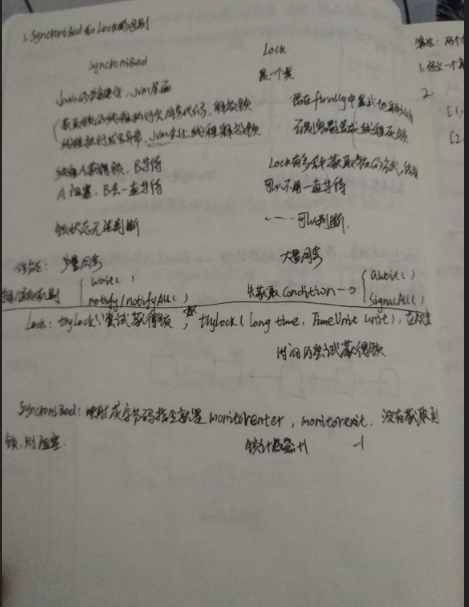 1. Synchronized和Lock的区别
Synchronized Lock
Java的关键字，Jvm层面 是一个类
获取锁的线程执行完同步代码，释放锁 必在finally中
线程执行发生异常，Jvm会让线程释放锁 否则容易造成线程死锁
线程A获得锁，B等待 Lock有多种获取锁的方式，
A阻塞，B会一直等待 可以不用一直等待
锁状态无法判断 ----可以判断
性能：少量同步 大量同步
wait()
notify/notifyAll() 先获取Condition → await()
signalAll()
Lock：tryLock()尝试获得锁，tryLock(long time, TimeUnit unit),
时间内尝试获得锁
Synchronized：映射成字节码指令就是monitorenter，monitorexit. 没有获取到
锁，则阻塞 锁计数器+1 -1
编程：两个
1.
2.